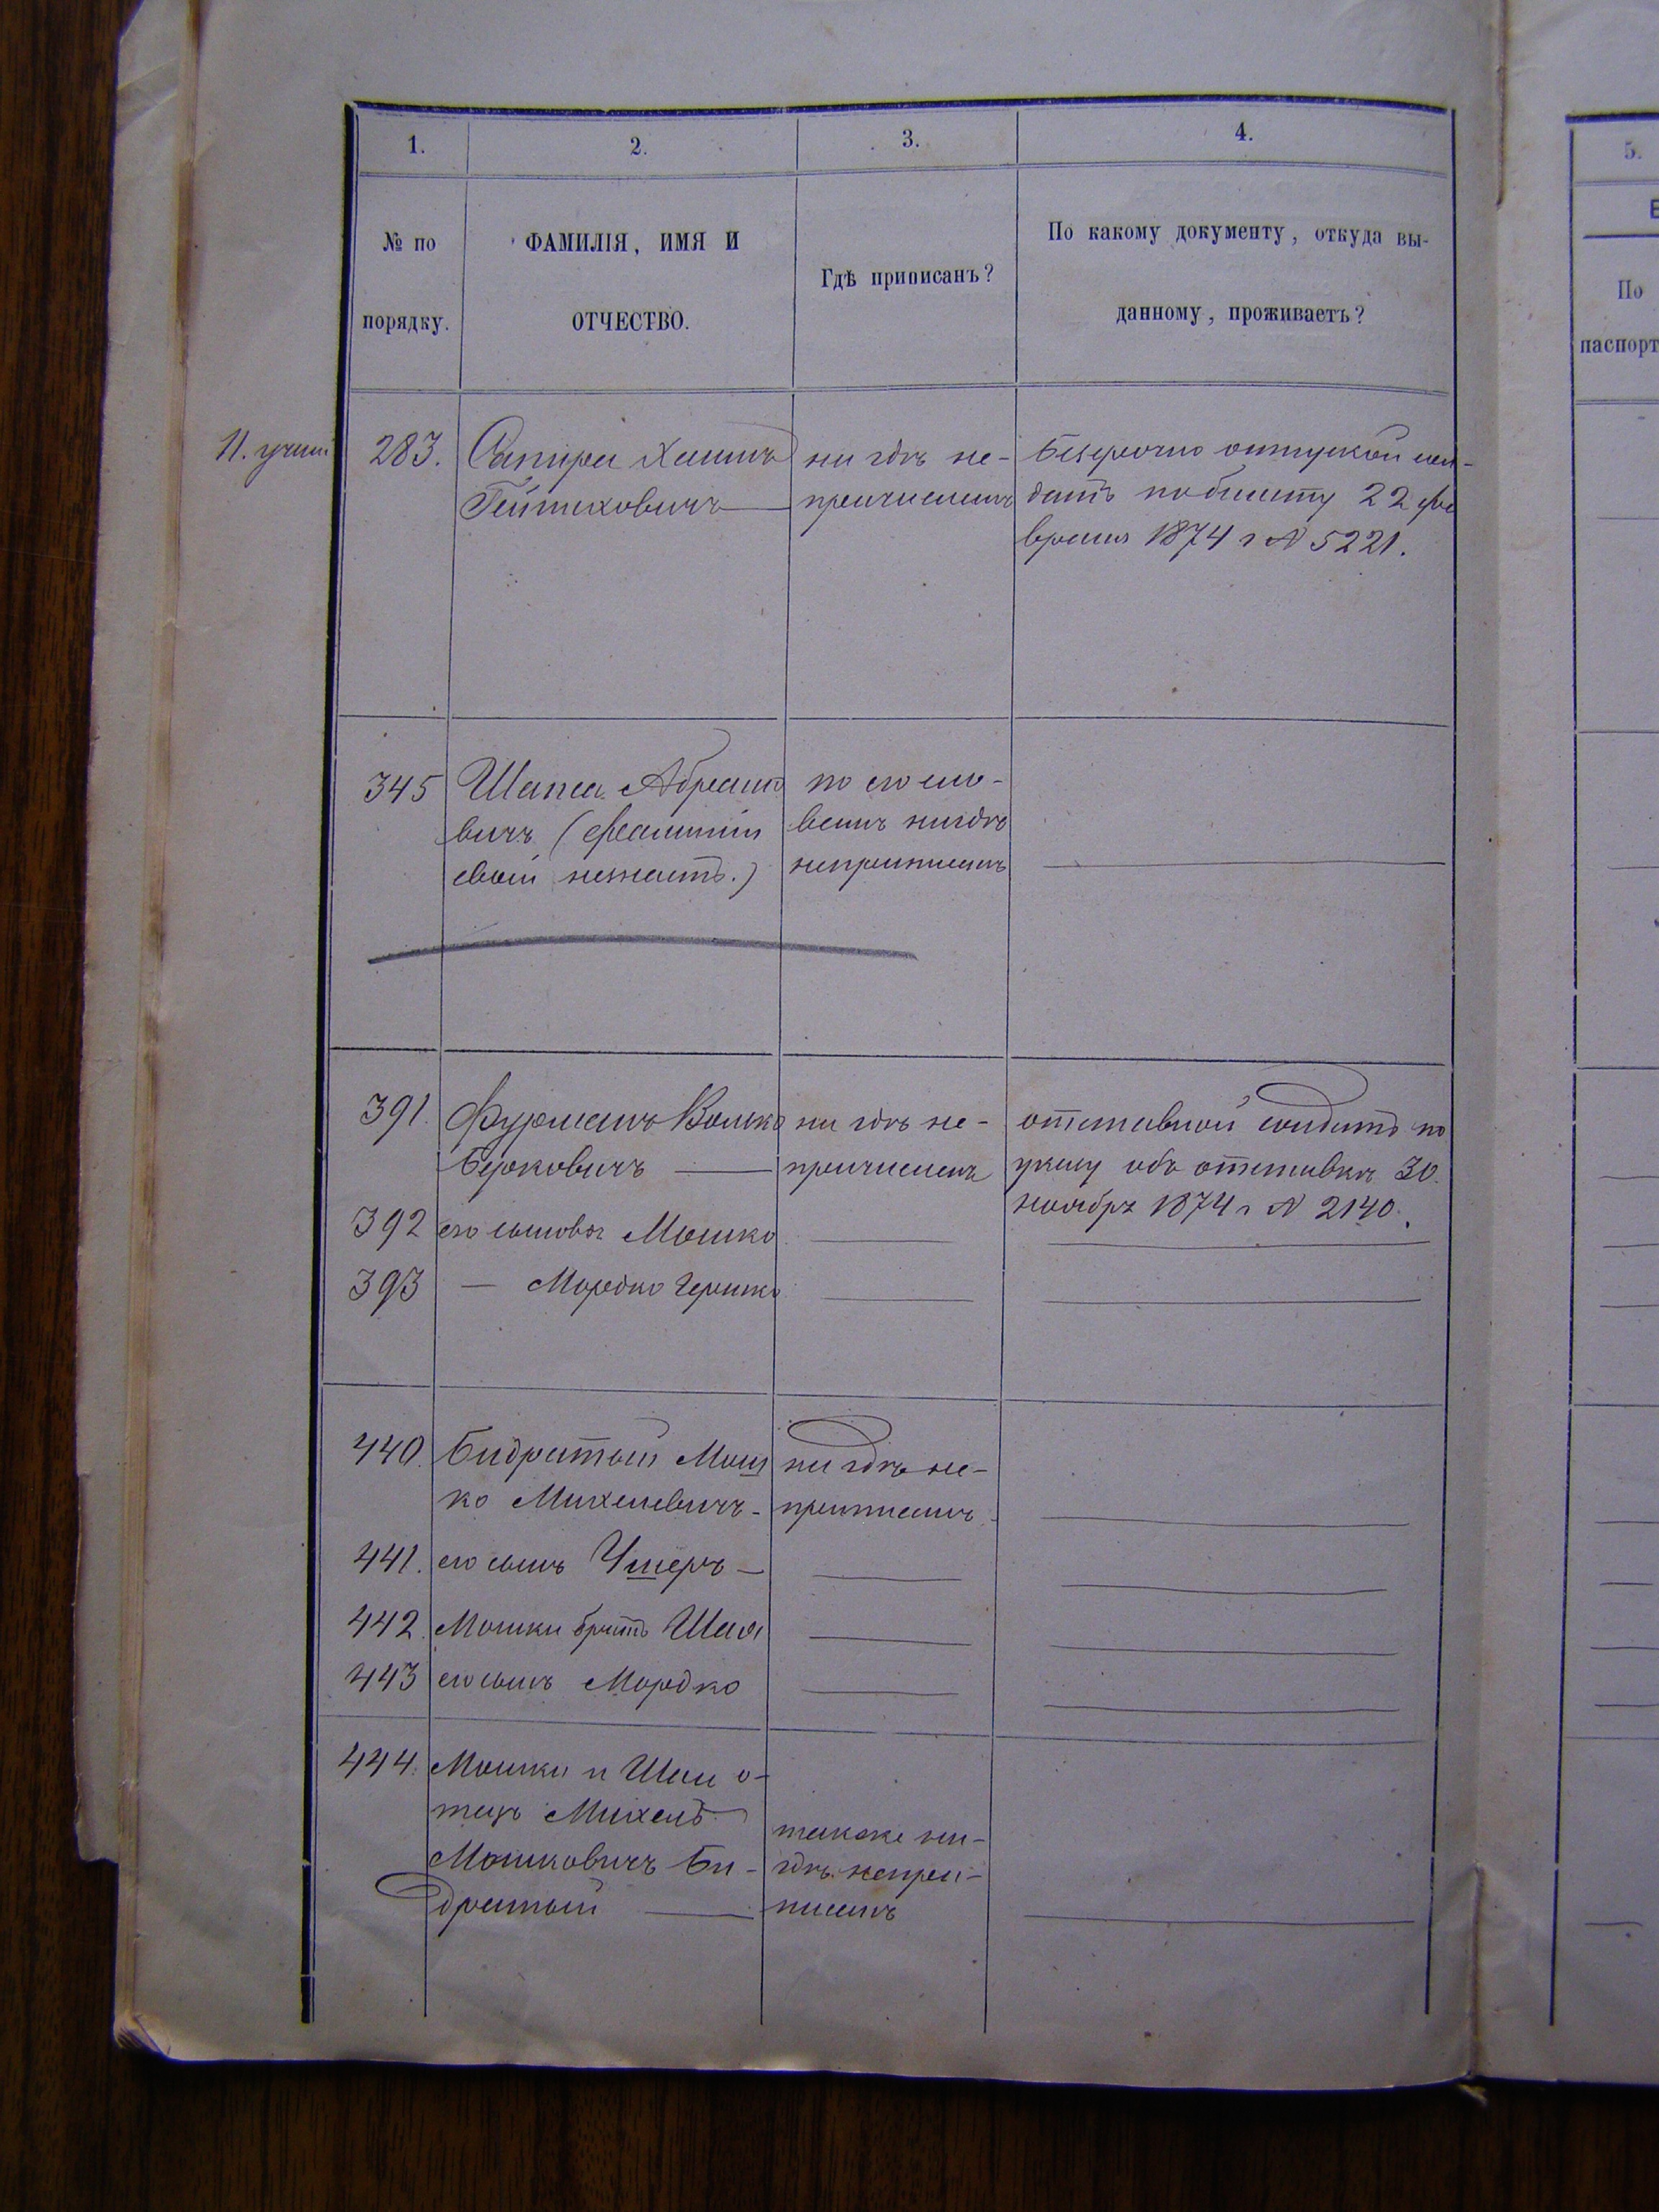 1. 2. 3. 4.
№ по порядку.
ФАМИЛІЯ, ИМЯ И
ОТЧЕСТВО.
Гдѣ приписанъ?
По какому документу, откуда вы-
данному, проживаетъ?
5.
По
паспорт
11.
283. Сапира Хаимъ
ни гдѣ не-
Безсрочно отпускной сол-
причисленъ
датъ по билету 22 фе
враля 1874 г № 5221.
345 Шапса Абрамо
вичъ (фамиліи
своей незнаетъ.)
по его сло-
вамъ нигдѣ
неприписанъ
391. Фурманъ Волько
Берковичъ
ни гдѣ не-
причисленъ
отставной солдатъ по
указу объ отставкѣ 30
ноября 1874 г № 2140.
392 его сыновья Мошко
393 — Мордко Гершко
440. Бидратый Мош
ко Михелевичъ -
ни гдѣ не-
приписанъ
441. его сынъ Ушеръ —
442. Мошки братъ Шая
443 его сынъ Мордко
444. Мошки и Шаи о-
тецъ Михель
Мошковичъ Би-
дратый
также ни-
гдѣ непри-
писанъ